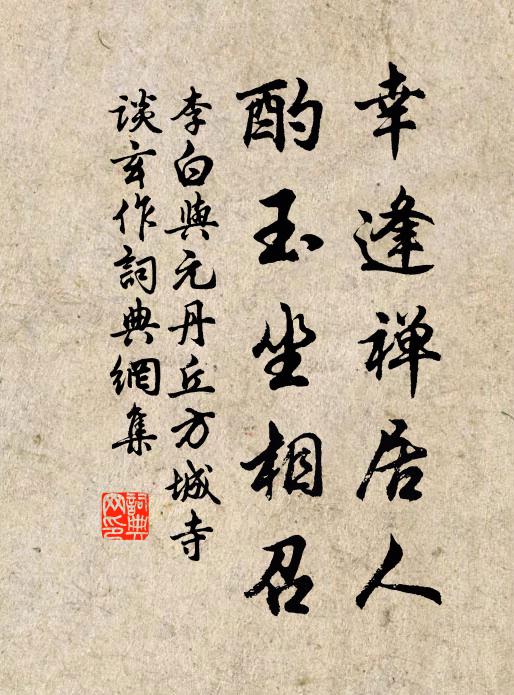 幸逢禅居人
酌玉坐相召
李白與元丹丘方城寺
談玄作詞典網集
詞典
网印